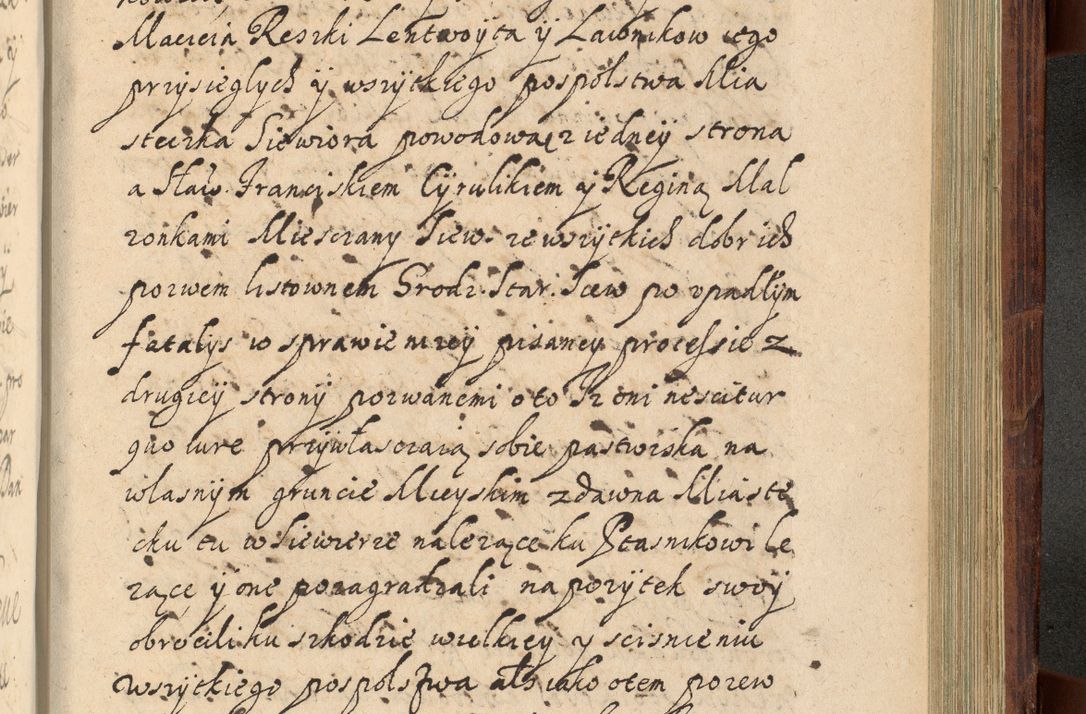 Macieia Reszki Lentwoyta ÿ Ławnikow iego
przysięglych ÿ wszytkiego pospolstwa Mia
steczka Siewiora powodową z iedneÿ strona
a Sław. Franciskiem Cÿrulikiem ÿ Reginą Mał
zonkami Miesczany Siew: ze wszytkich dobr ich
pozwem listownem Grodz. Star. Siew po vpadłÿm
fatalÿs w sprawie nizeÿ pisaneÿ processie z
drugieÿ stronÿ pozwanemi o to Iz oni nescitur
quo iure przÿwłasczaią sobie pastwiska na
własnÿm gruncie Mieÿskim z dawna Miaste
cku tu w Siewierze nalezące ku Ptasnikowi le
zące ÿ one pozagradzali na pozÿtek swoÿ
obrocili ku szkodzie wielkieÿ y scisnieniu
wszytkiego pospolstwa albo iako o tem pozew